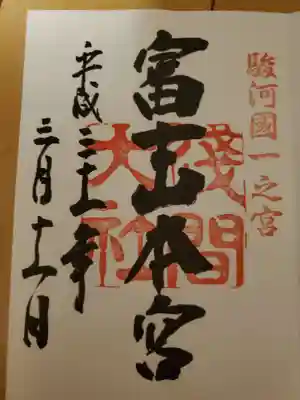 駿河國一之宮
富士本宮
淺間大社
平成三十一年
三月十一日